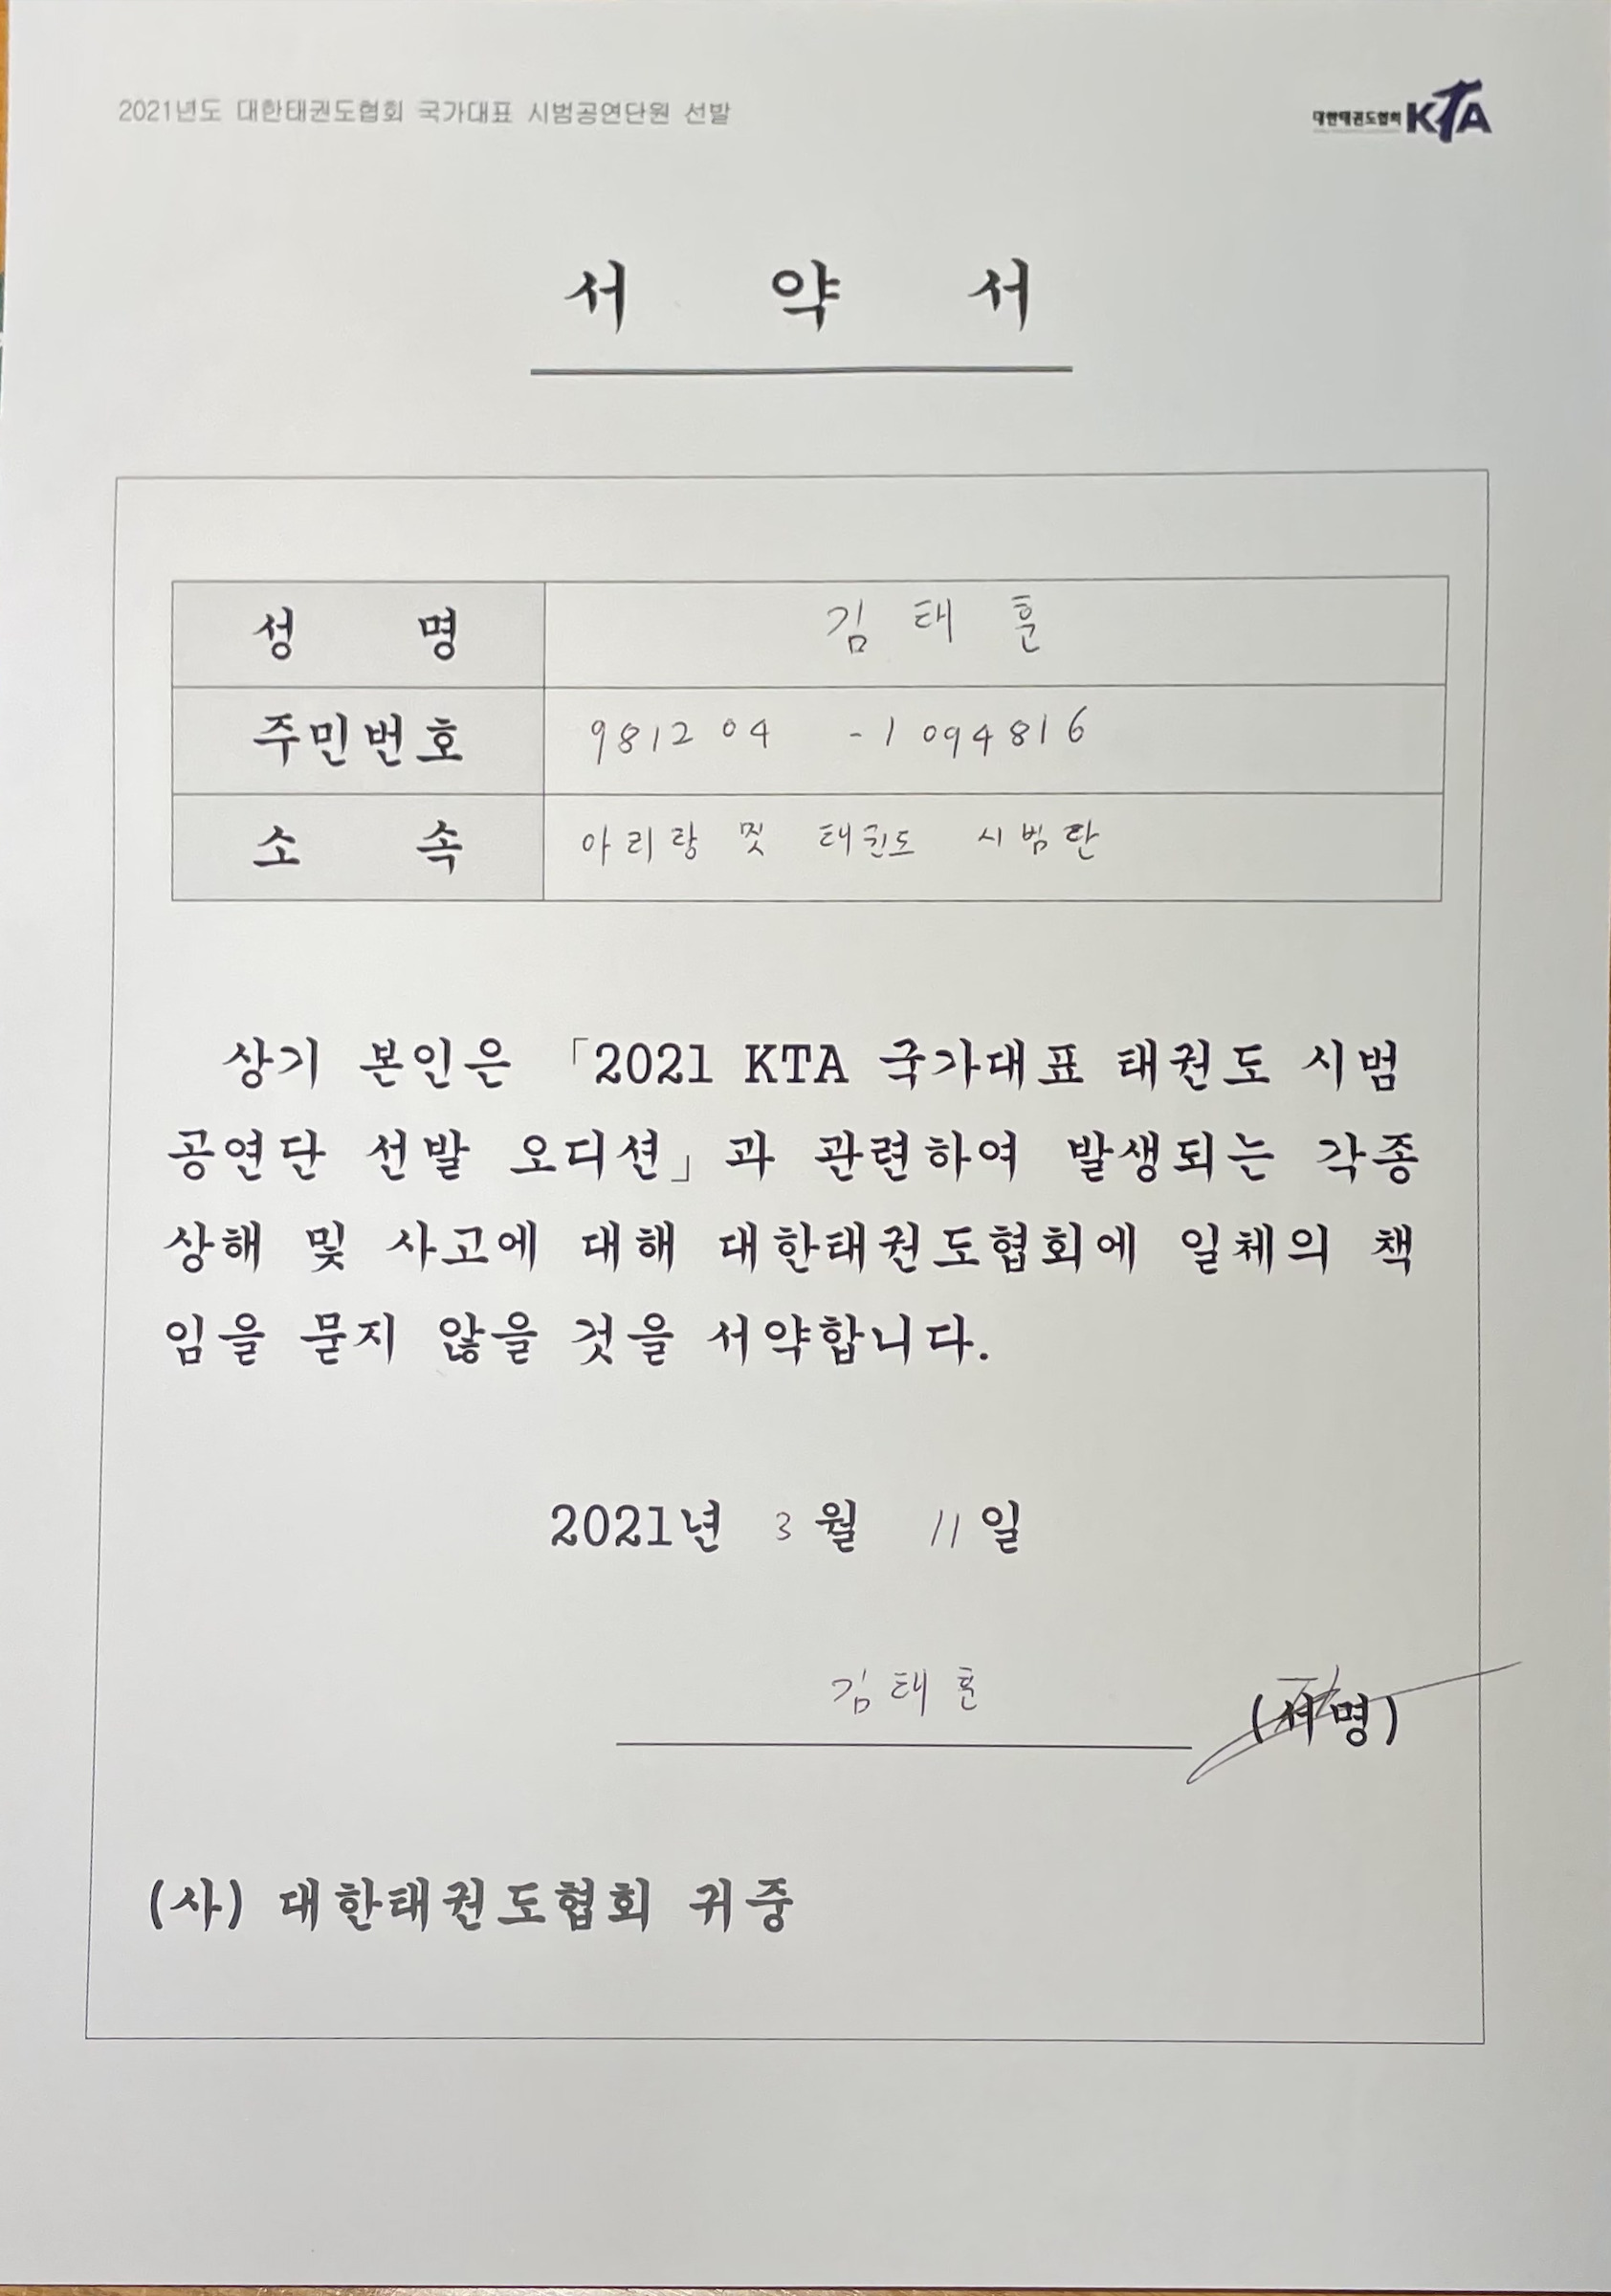 2021년도 대한태권도협회 국가대표 시범공연단원 선발
대한태권도협회 KTA
서 약 서
성 명 김 태 훈
주민번호 981204 -1094816
소 속 아리랑 및 태권도 시범단
상기 본인은 「2021 KTA 국가대표 태권도 시범
공연단 선발 오디션」과 관련하여 발생되는 각종
상해 및 사고에 대해 대한태권도협회에 일체의 책
임을 묻지 않을 것을 서약합니다.
2021년 3월 11일
김태훈 (서명)
(사) 대한태권도협회 귀중